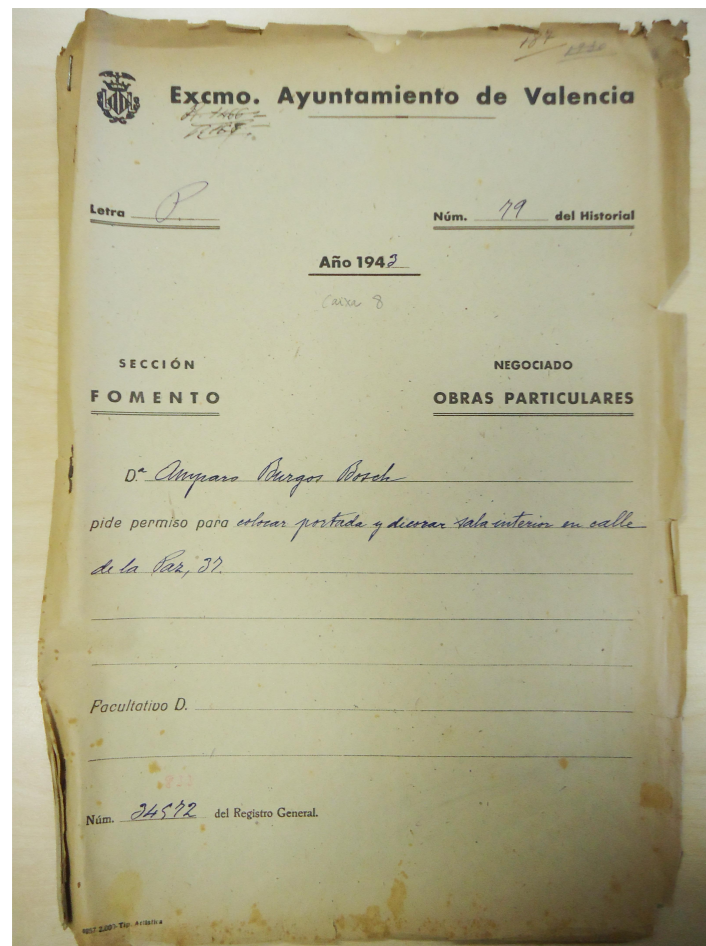 187
1930
Excmo. Ayuntamiento de Valencia
Letra P. Núm. 79 del Historial
Año 1943
Caixa 8
SECCIÓN NEGOCIADO
FOMENTO OBRAS PARTICULARES
D.ª Amparo Burgos Bosch
pide permiso para colocar portada y decorar sala interior en calle
de la Paz, 37.
Facultativo D.
Núm. 34572 del Registro General.
Tip. Artística